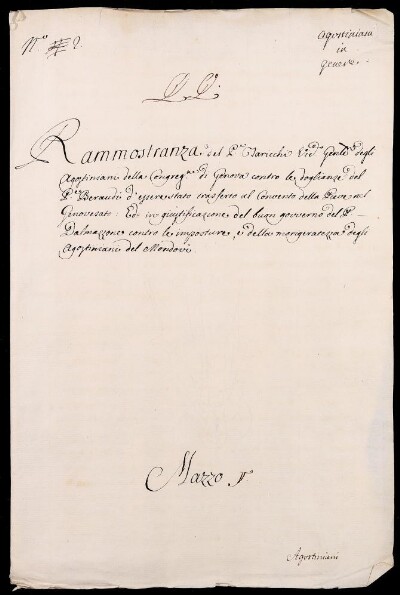 N.º 2.
Agostiniani
in
genere.
Rammostranza del P.re Claricchi Vic.º Gen.le degli
Agostiniani della Congreg.ne di Genova contro le doglianze del
P.re Beraudi d'essere stato trasferto al Convento della Pieve nel
Genovesato: Ed in giustificazione del buon governo del P.
Dalmazzone contro le imposture, e della morigeratezza degli
Agostiniani del Mondovì
Mazzo 1º
Agostiniani